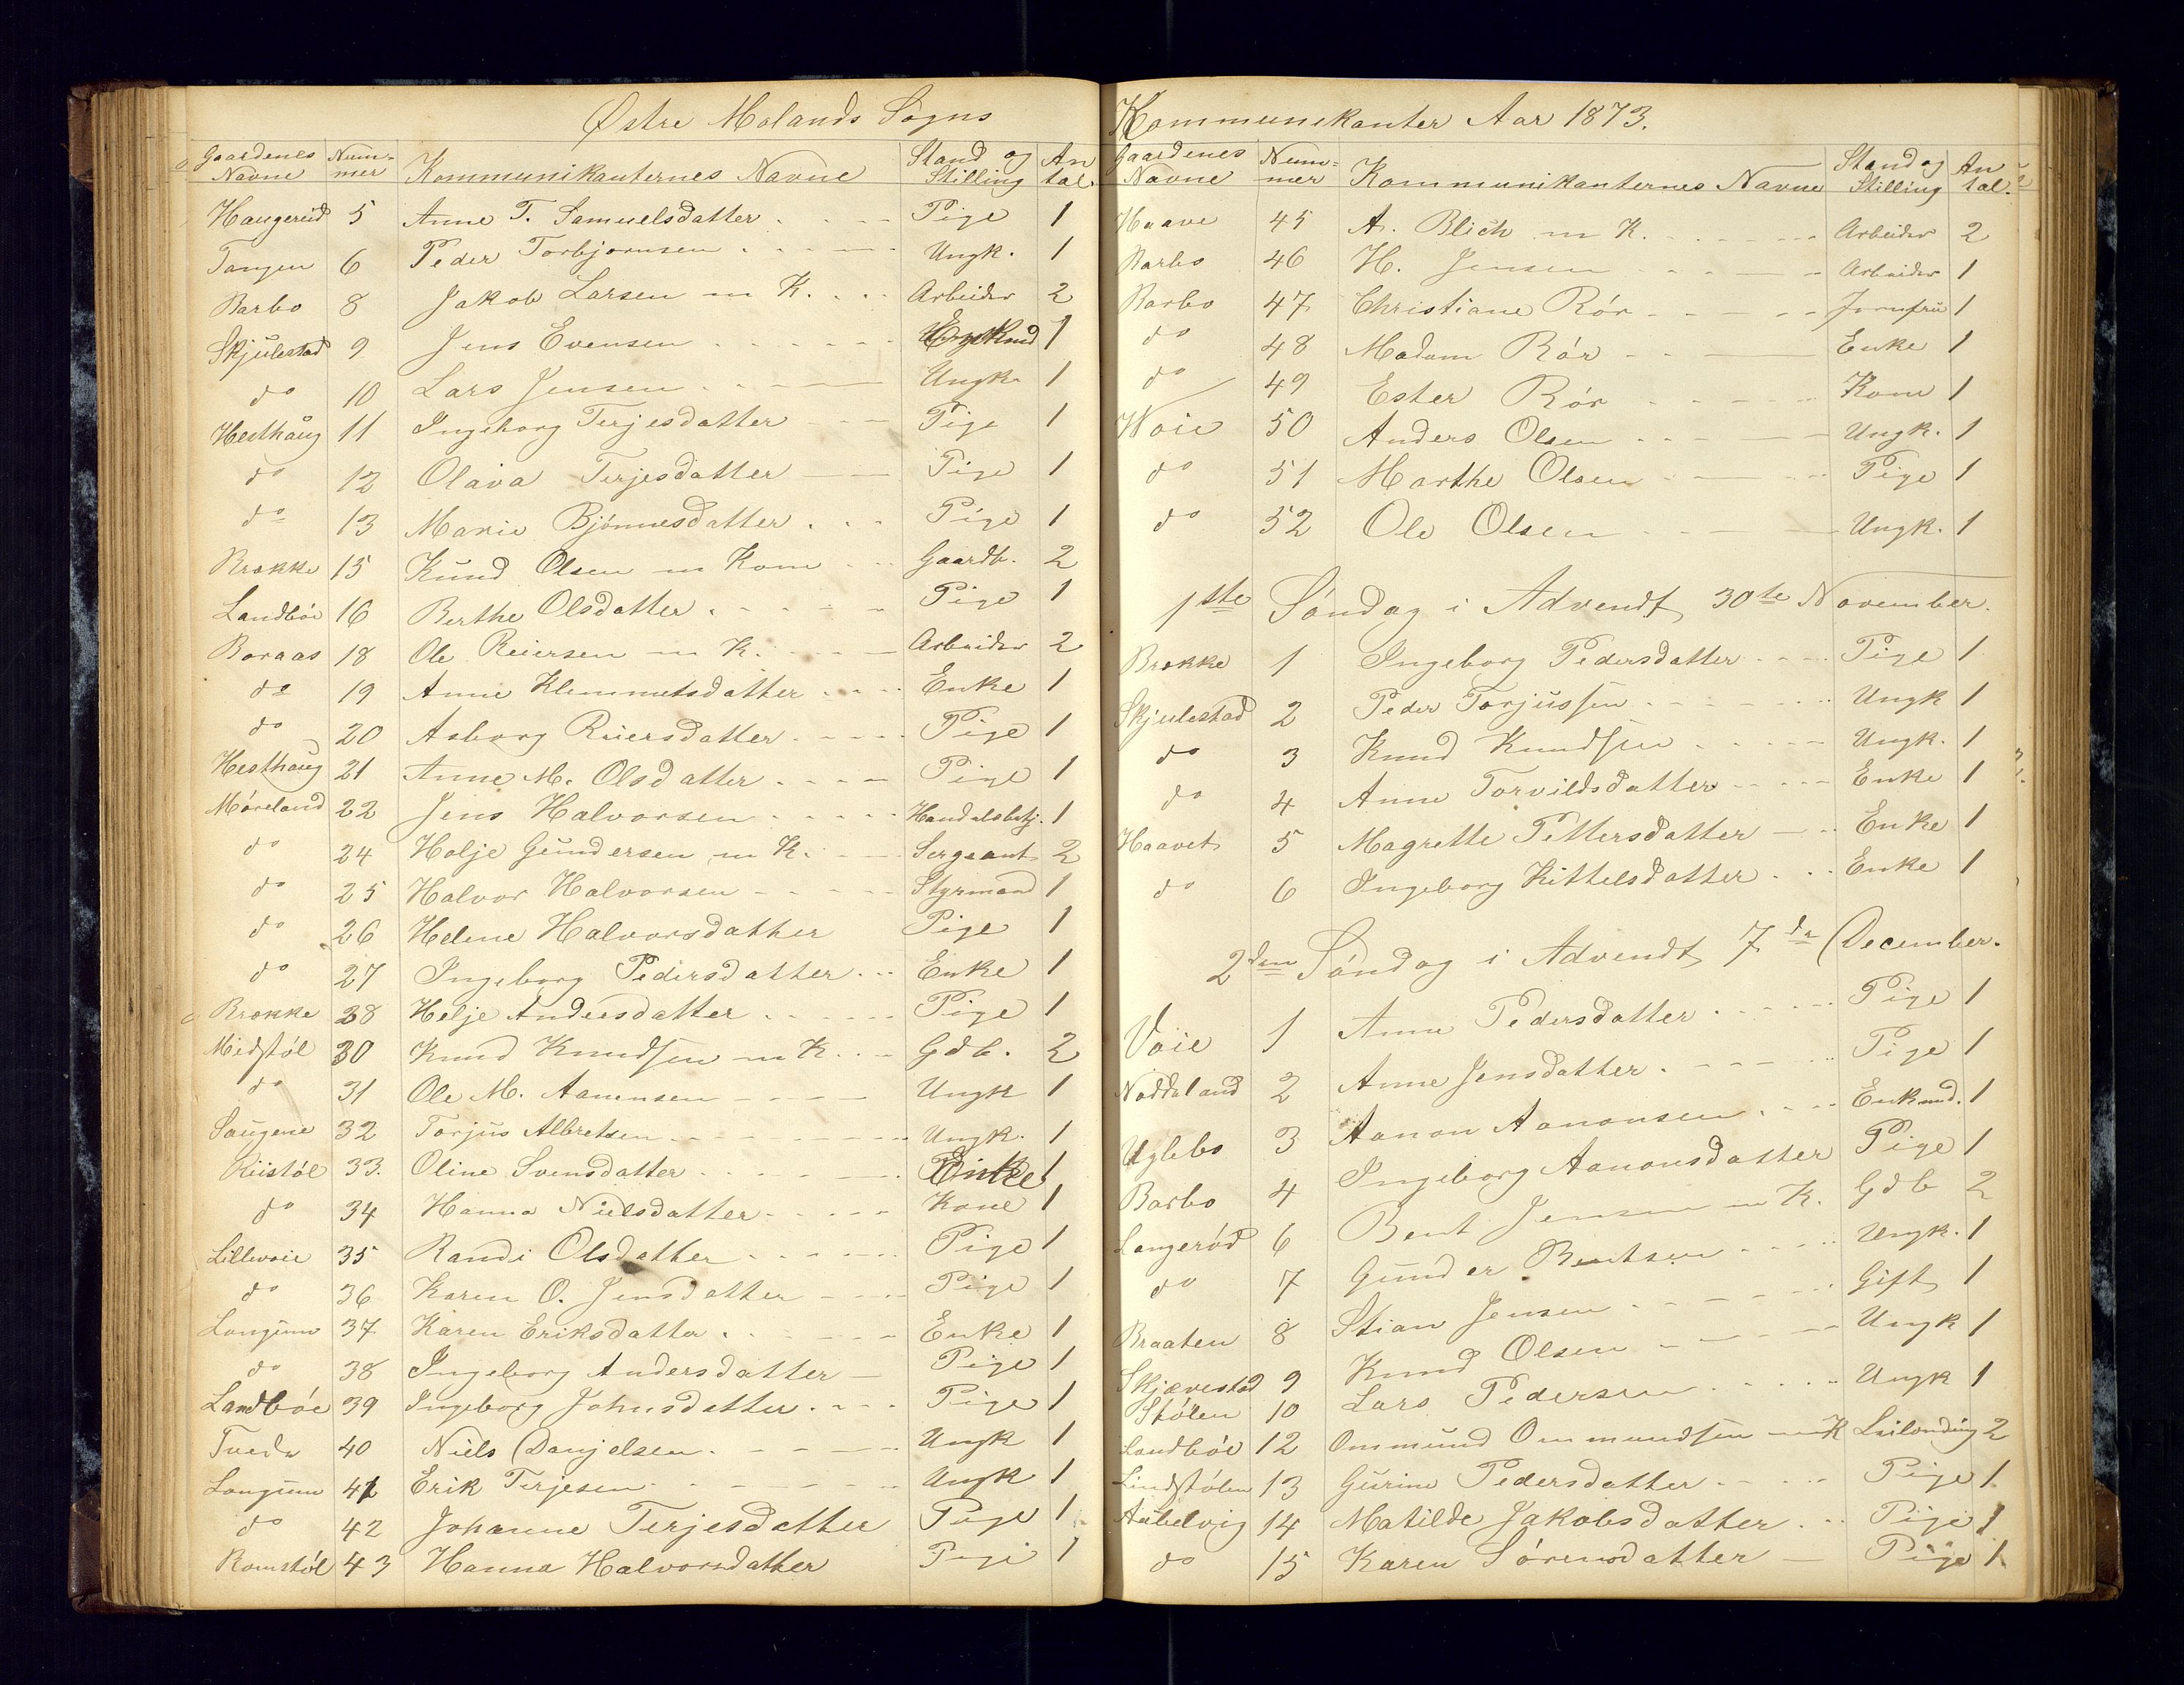 Østre Molands Sogns
Gaardenes Navne | Num-mer | Kommunikanternes Navne | Stand og Stilling | An tal.
Haugerud 5 Anne T. Samuelsdatter Pige 1
Tangen 6 Peder Torbjornsen Ungk. 1
Barbo 8 Jakob Larsen m K. Arbeider 2
Skjulestad 9 Jens Evensen 1
do 10 Lars Jensen Ungk 1
Hesthaug 11 Ingeborg Terjesdatter Pige 1
do 12 Olava Terjesdatter Pige 1
do 13 Marie Bjönnesdatter Pige 1
Brække 15 Knud Olsen m Kone Gaardb. 2
Landböe 16 Berthe Olsdatter Pige 1
Boraas 18 Ole Reiersen m K. Arbeider 2
do 19 Anne Klemmetsdatter Enke 1
do 20 Asborg Reiersdatter Pige 1
Hesthaug 21 Anne M. Olsdatter Pige 1
Möreland 22 Jens Halvorsen Handelsbetj. 1
do 24 Holje Gundersen m K. Sergeant 2
do 25 Halvor Halvorsen Styrmand 1
do 26 Helene Halvorsdatter Pige 1
do 27 Ingeborg Pedersdatter Enke 1
Brække 28 Helje Andersdatter Pige 1
Midstöl 30 Knud Knudsen m K. Gdb. 2
do 31 Ole M. Aanensen Ungk 1
Saugene 32 Torjus Albretsen Ungk. 1
Kiistöl 33. Oline Svensdatter Enke 1
do 34 Hanna Nielsdatter Kone 1
Lillevoie 35 Randi Olsdatter Pige 1
do 36 Karen O. Jensdatter Pige 1
Longum 37 Karen Eriksdatter Enke 1
do 38 Ingeborg Andersdatter Pige 1
Landböe 39 Ingeborg Johnsdatter Pige 1
Tvede 40 Niels Danjelsen Ungk 1
Longum 41 Erik Terjesen Ungk 1
do 42 Johanne Terjesdatter Pige 1
Romstöl 43 Hanna Halvorsdatter Pige 1
Kommunikanter Aar 1873.
Gaardenes Navne | Num-mer | Kommunikanternes Navne | Stand og Stilling | An tal.
Haave 45 A. Blich m K. Arbeider 2
Barbo 46 H. Jensen Arbeider 1
Barbo 47 Christiane Rör Jomfru 1
do 48 Madam Rör Enke 1
do 49 Ester Rör Kone 1
Woie 50 Anders Olsen Ungk. 1
do 51 Marthe Olsen Pige 1
do 52 Ole Olsen Ungk. 1
1ste Söndag i Advendt 30te November.
Brække 1 Ingeborg Pedersdatter Pige 1
Skjulestad 2 Peder Torjussen Ungk 1
do 3 Knud Knudsen Ungk. 1
do 4 Anne Torvildsdatter Enke 1
Haavet 5 Magrette Pettersdatter Enke 1
do 6 Ingeborg Kittelsdatter Enke 1
2den Söndag i Advendt 7de December.
Voie 1 Anne Pedersdatter Pige 1
Noddeland 2 Anne Jensdatter Pige 1
Uglebo 3 Aanon Aanonsen Enkemd. 1
Barbo 4 Ingeborg Aanonsdatter Pige 1
Langeröd 6 Bent Jensen m K. Gdb 2
do 7 Gunder Bentsen Ungk. 1
Braaten 8 Stian Jensen Gift 1
Skjævestad 9 Knud Olsen Ungk 1
Stölen 10 Lars Pedersen Ungk 1
Landböe 12 Ommund Ommundsen m K Leilending 2
Lindstölen 13 Gurine Pedersdatter Pige 1
Aubelvig 14 Matilde Jakobsdatter Pige 1
do 15 Karen Sörensdatter Pige 1